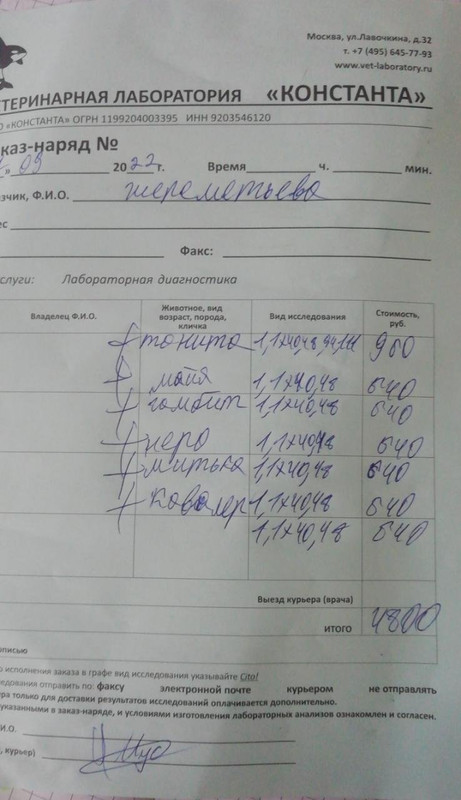 Москва, ул.Лавочкина, д.32
т. +7 (495) 645-77-93
www.vet-laboratory.ru
ТЕРИНАРНАЯ ЛАБОРАТОРИЯ «КОНСТАНТА»
О «КОНСТАНТА» ОГРН 1199204003395 ИНН 9203546120
каз-наряд №
» 09 2022г. Время ч. мин.
зчик, Ф.И.О. Шереметьева
ес
Факс:
слуги: Лабораторная диагностика
Владелец Ф.И.О. Животное, вид возраст, порода, кличка Вид исследования Стоимость, руб.
960
майя 1,1х40,48 640
гамбит 1,1х40,48 640
неро 1,1х40,48 640
митька 1,1х40,48 640
кавалер 1,1х40,48 640
1,1х40,48 640
Выезд курьера (врача)
ИТОГО 4800
писью
о исполнения заказа в графе вид исследования указывайте Cito!
едования отправить по: факсу электронной почте курьером не отправлять
ра только для доставки результатов исследований оплачивается дополнительно.
указанными в заказ-наряде, и условиями изготовления лабораторных анализов ознакомлен и согласен.
И.О.
, курьер)